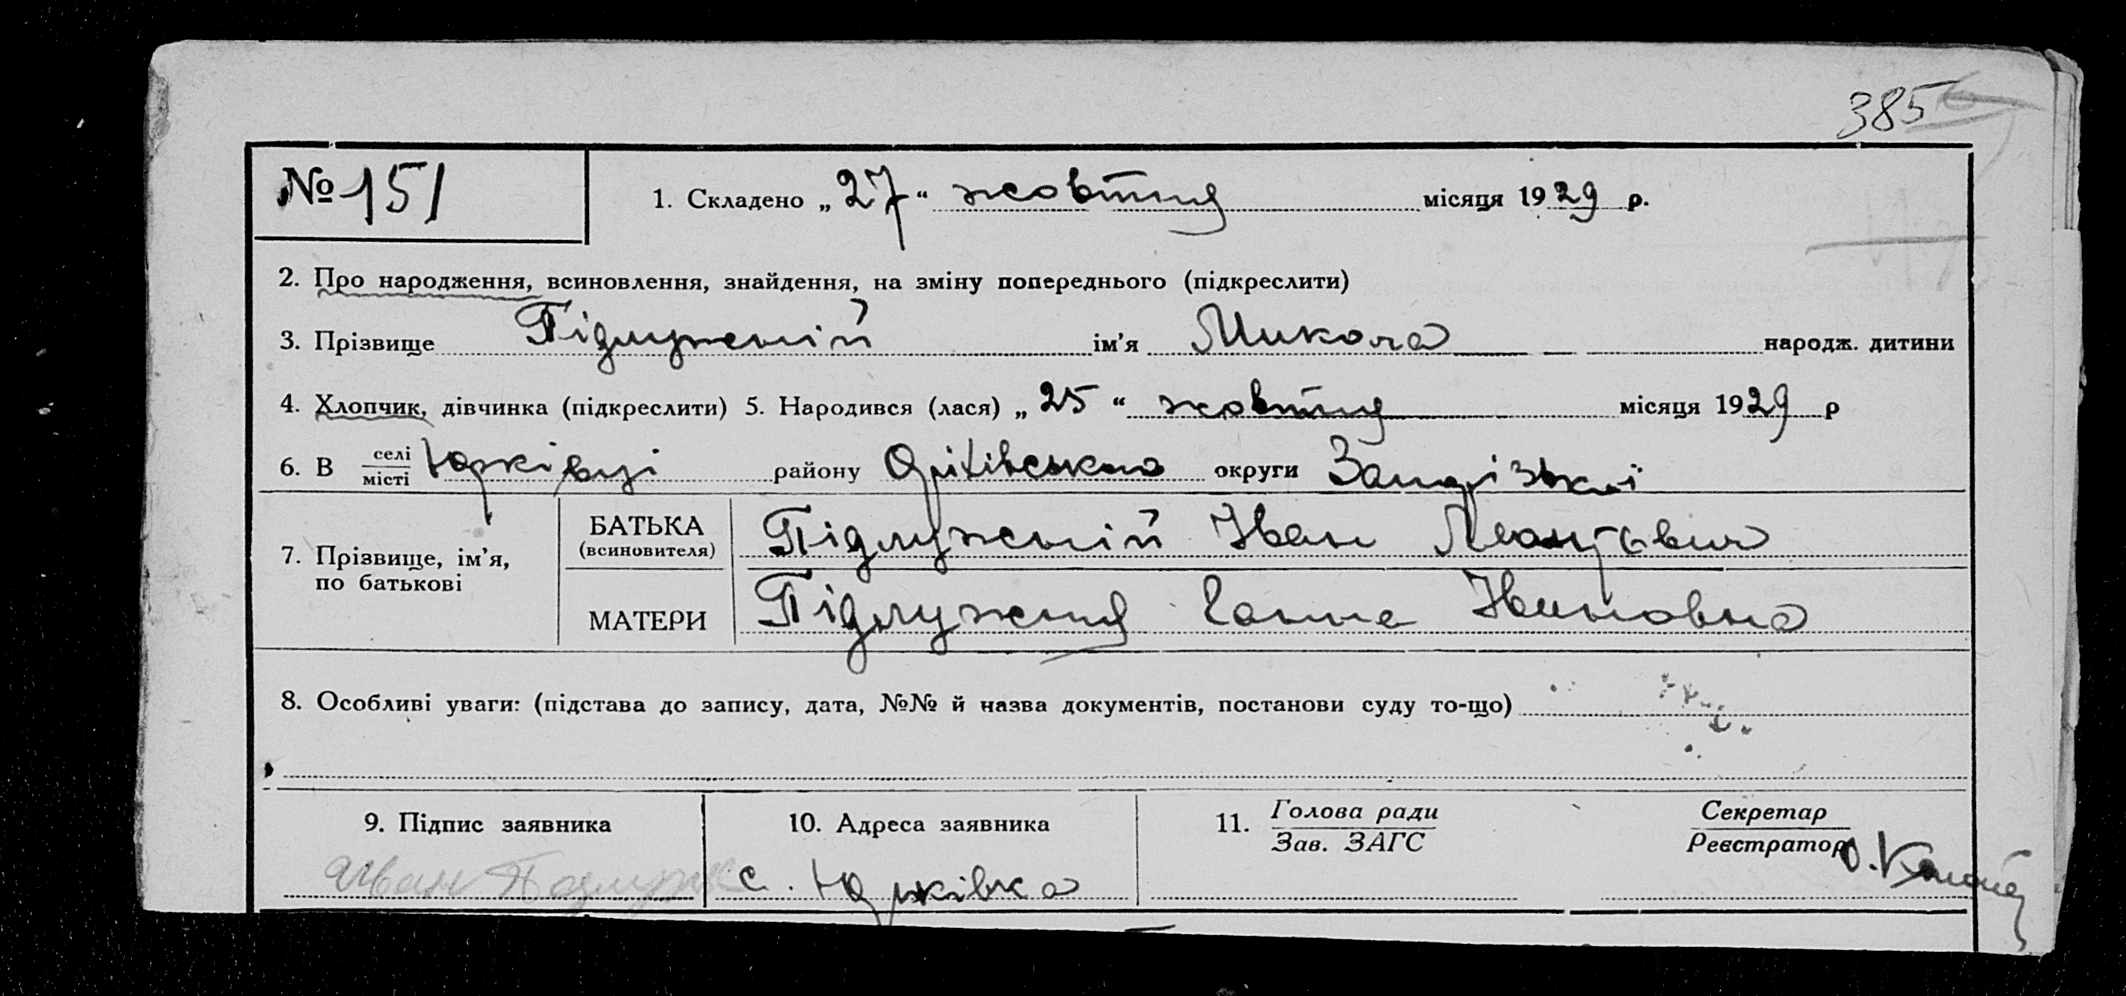 385
№ 151
1. Складено „27“ жовтня місяця 1929 р.
2. Про народження, всиновлення, знайдення, на зміну попереднього (підкреслити)
3. Прізвище Підлужній ім'я Микола народж. дитини
4. Хлопчик, дівчинка (підкреслити) 5. Народився (лася) „25“ жовтня місяця 1929 р
6. В селі місті Юрківці району Оріхівського округи Запорізької
7. Прізвище, ім'я, по батькові
БАТЬКА (всиновителя) Підлужній Іван Леонтьевич
МАТЕРИ Підлужня Ганна Ивановна
8. Особливі уваги: (підстава до запису, дата, №№ й назва документів, постанови суду то-що)
9. Підпис заявника
Иван
10. Адреса заявника
с. Юрківка
11. Голова ради
Зав. ЗАГС
Секретар
Реєстратор